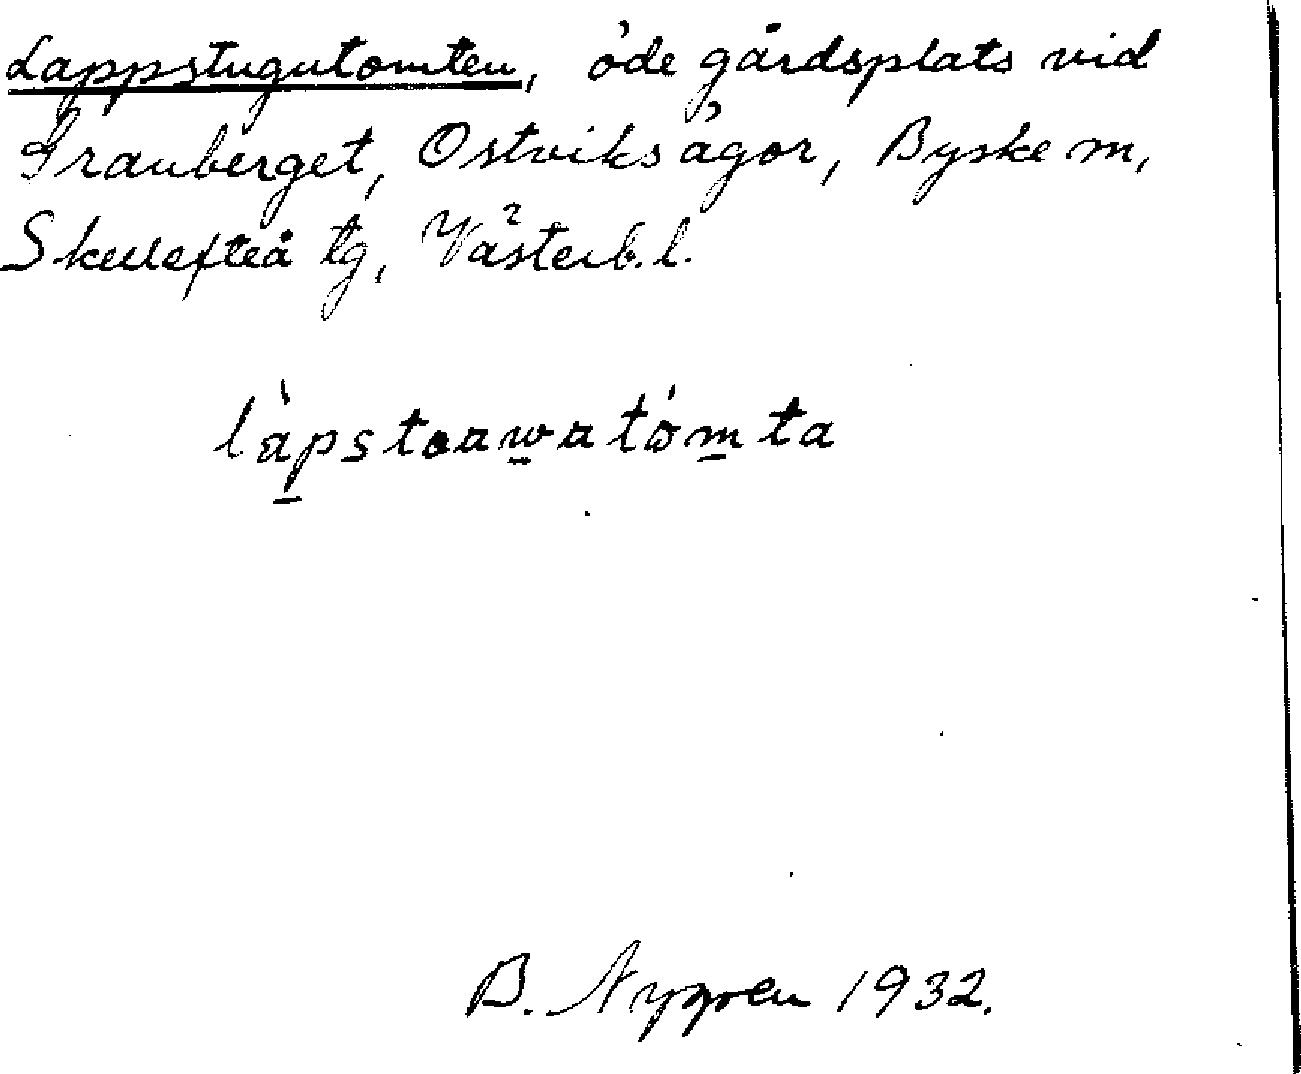 Lappstugutomten, öde gårdsplats vid
Granberget, Ostviks ägor, Byske m,
Skellefteå tg, Västerb. l.
làpstoawatómta
B. Nygren 1932.